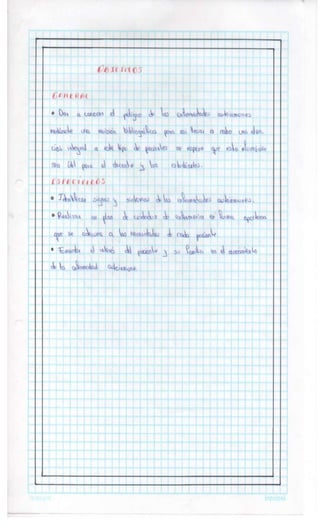 OBJETIVOS
GENERAL
• Dar a conocer el peligro de las enfermedades autoinmunes
mediante una revisión bibliográfica para así llevar a cabo una aten-
ción integral a este tipo de pacientes se espera que esta
sea útil para el docente y los estudiantes.
ESPECIFICOS
• Identificar signos y síntomas de las enfermedades autoinmunes.
• Realizar un plan de cuidados de enfermería en forma
que se adecúe a las necesidades de cada paciente
• el interés del paciente y su familia en el
de la enfermedad autoinmune.